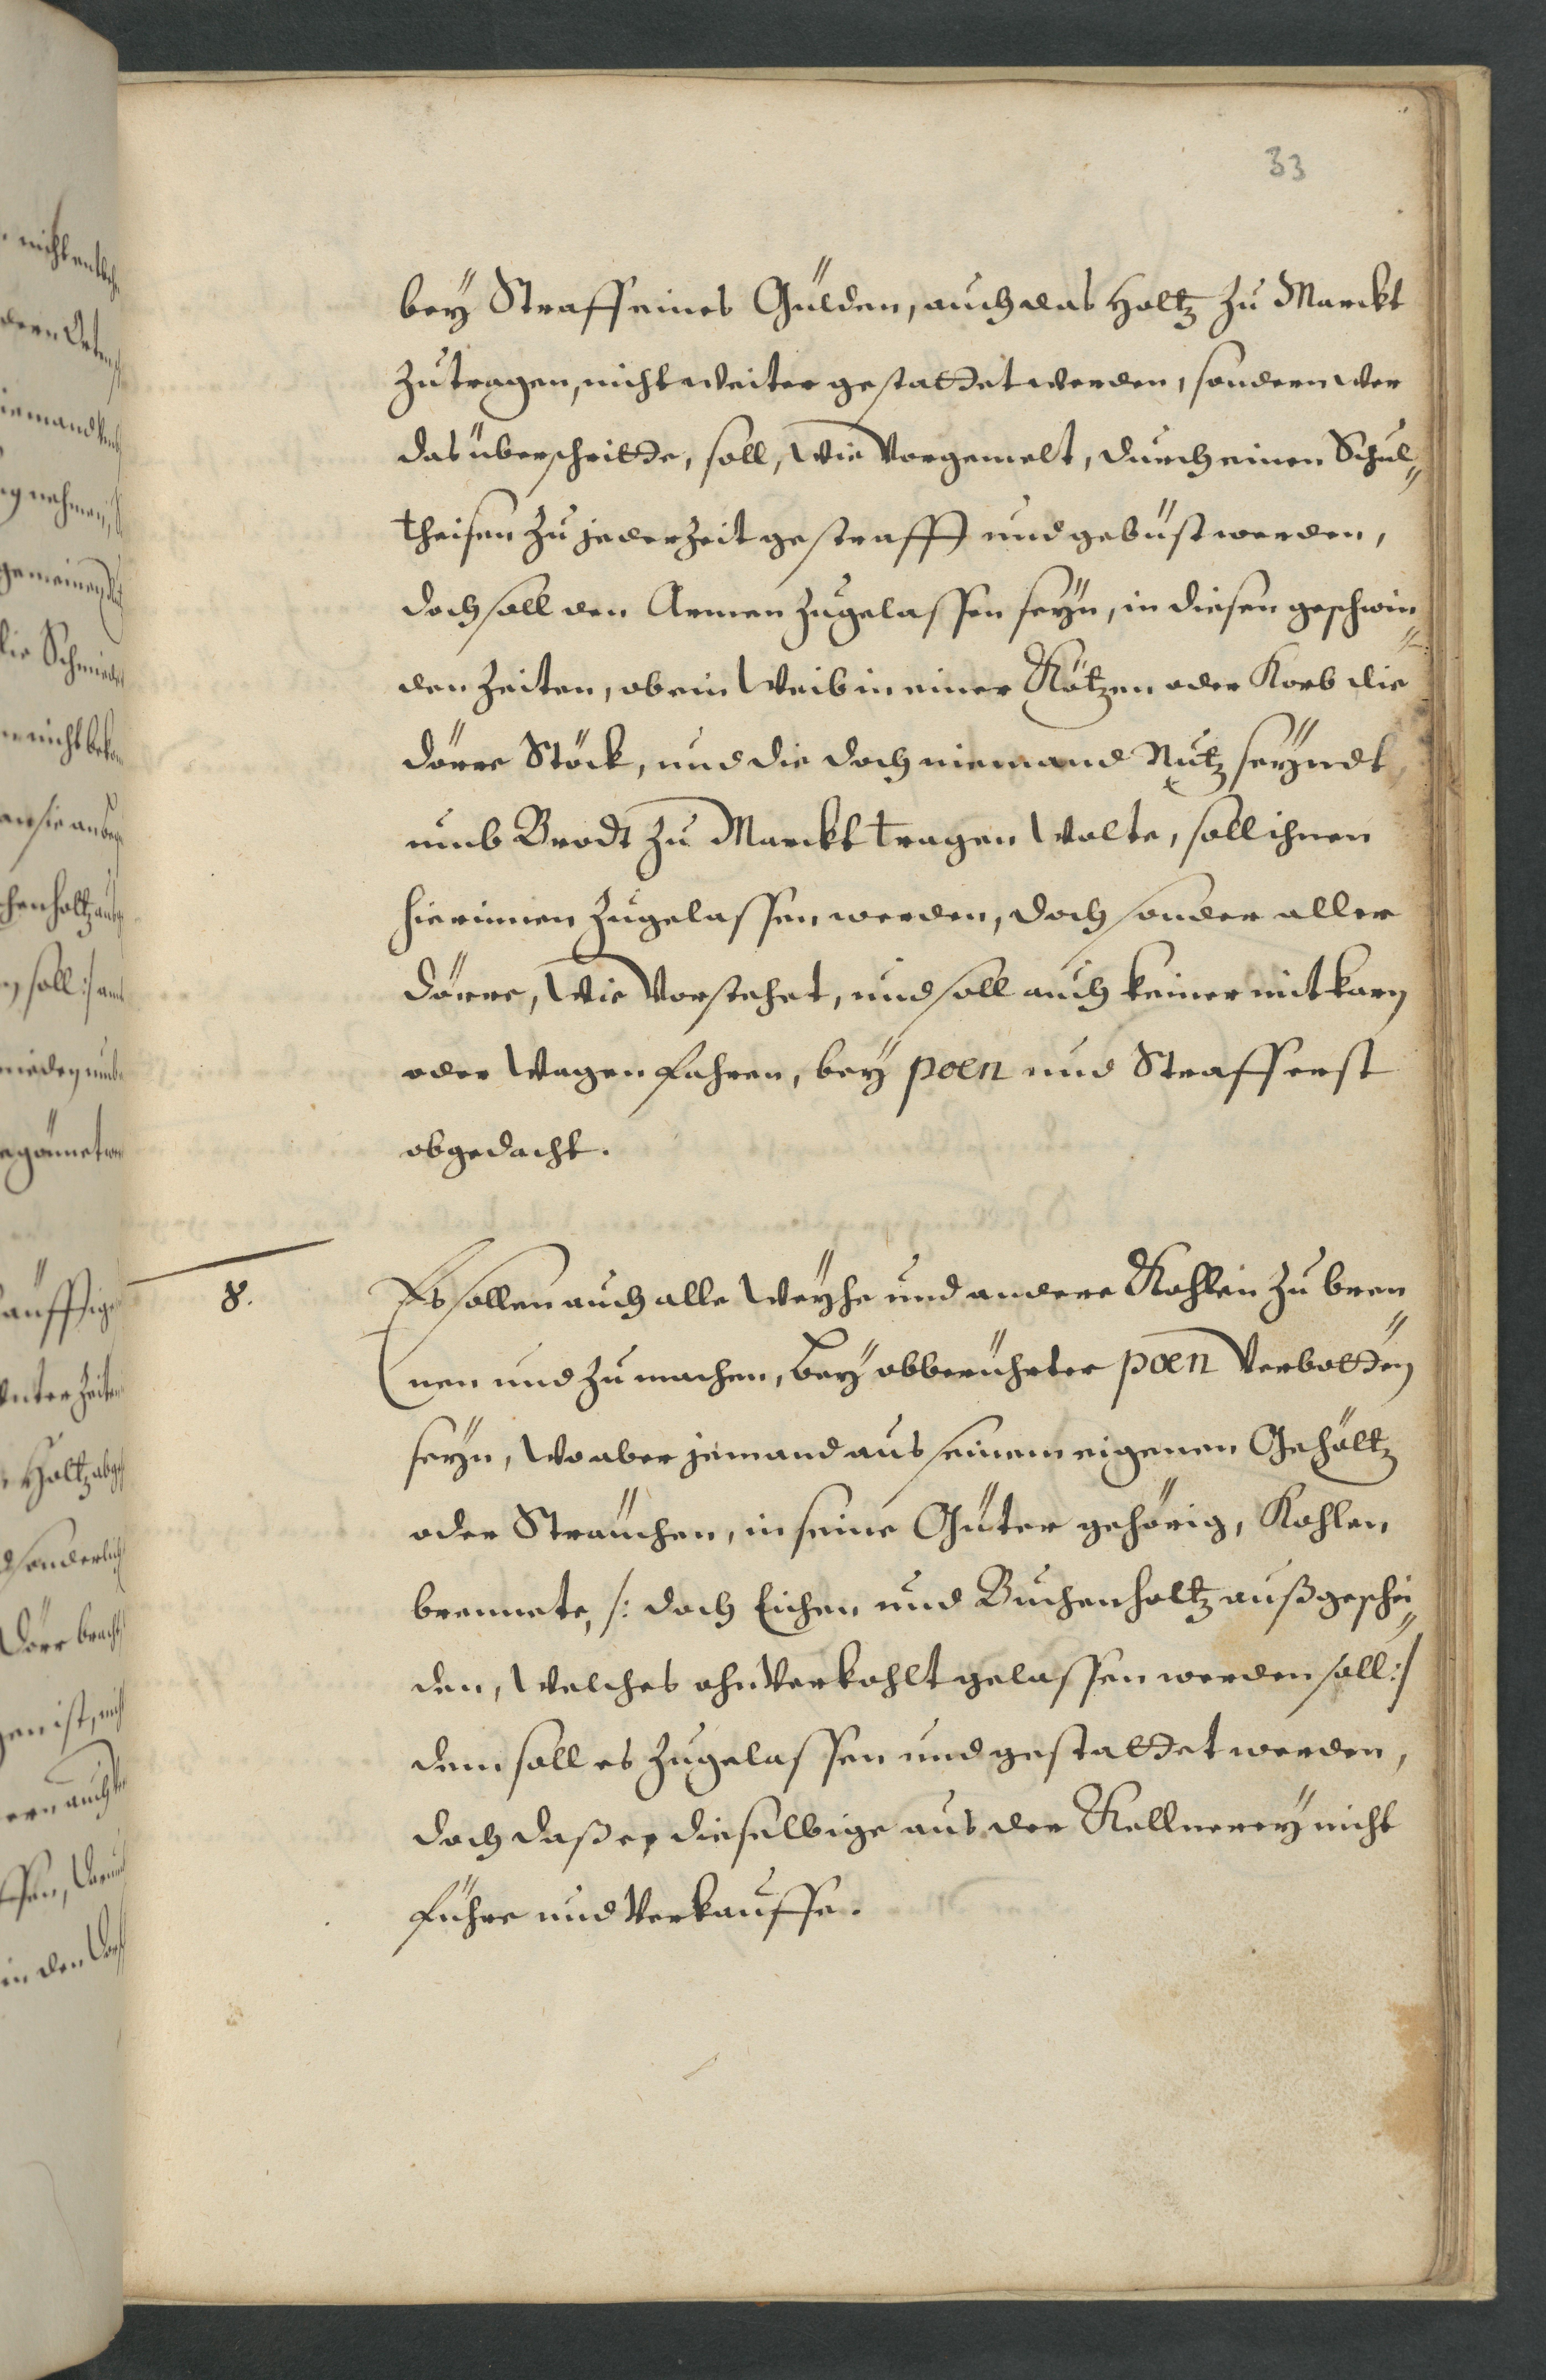 33
bey Straff eines Gülden, auch das Holtz zu Marckt
zu tragen, nicht weiter gestattet werden, sondern wer
das überschritte, soll, wie vorgemelt, durch einen Schul-
theisen zu jederzeit gestrafft und gebüst werden,
doch soll den Armen zugelassen seyn, in diesen geschwin-
den Zeiten, ob ein Weib in einer Kötzen oder Korb die
dörre Stöck, und die doch niemand Nutz seyndt,
umb Brodt zu Marckt tragen wolte, soll ihnen
hierinnen zugelassen werden, doch sonder aller
dörre, wie vorstehet, und soll auch keiner mit karn
oder Wagen fahren, bey poen und Straff erst
obgedacht.
8. Es sollen auch alle Weyhe und andere Kohlen zu bren-
nen und zu machen, bey obberührter poen verbotten
seyn, wo aber jemand aus seinem eigenen Gehöltz
oder Sträuchen, in seine Güter gehörig, Kohlen
brennete, /: doch Eichen und Buchenholtz außgeschei-
den, welches ohnverkohlt gelassen werden soll :/
dem soll es zugelassen und gestattet werden,
doch daß er dieselbige aus der Kellnerey nicht
führe und verkauffe.